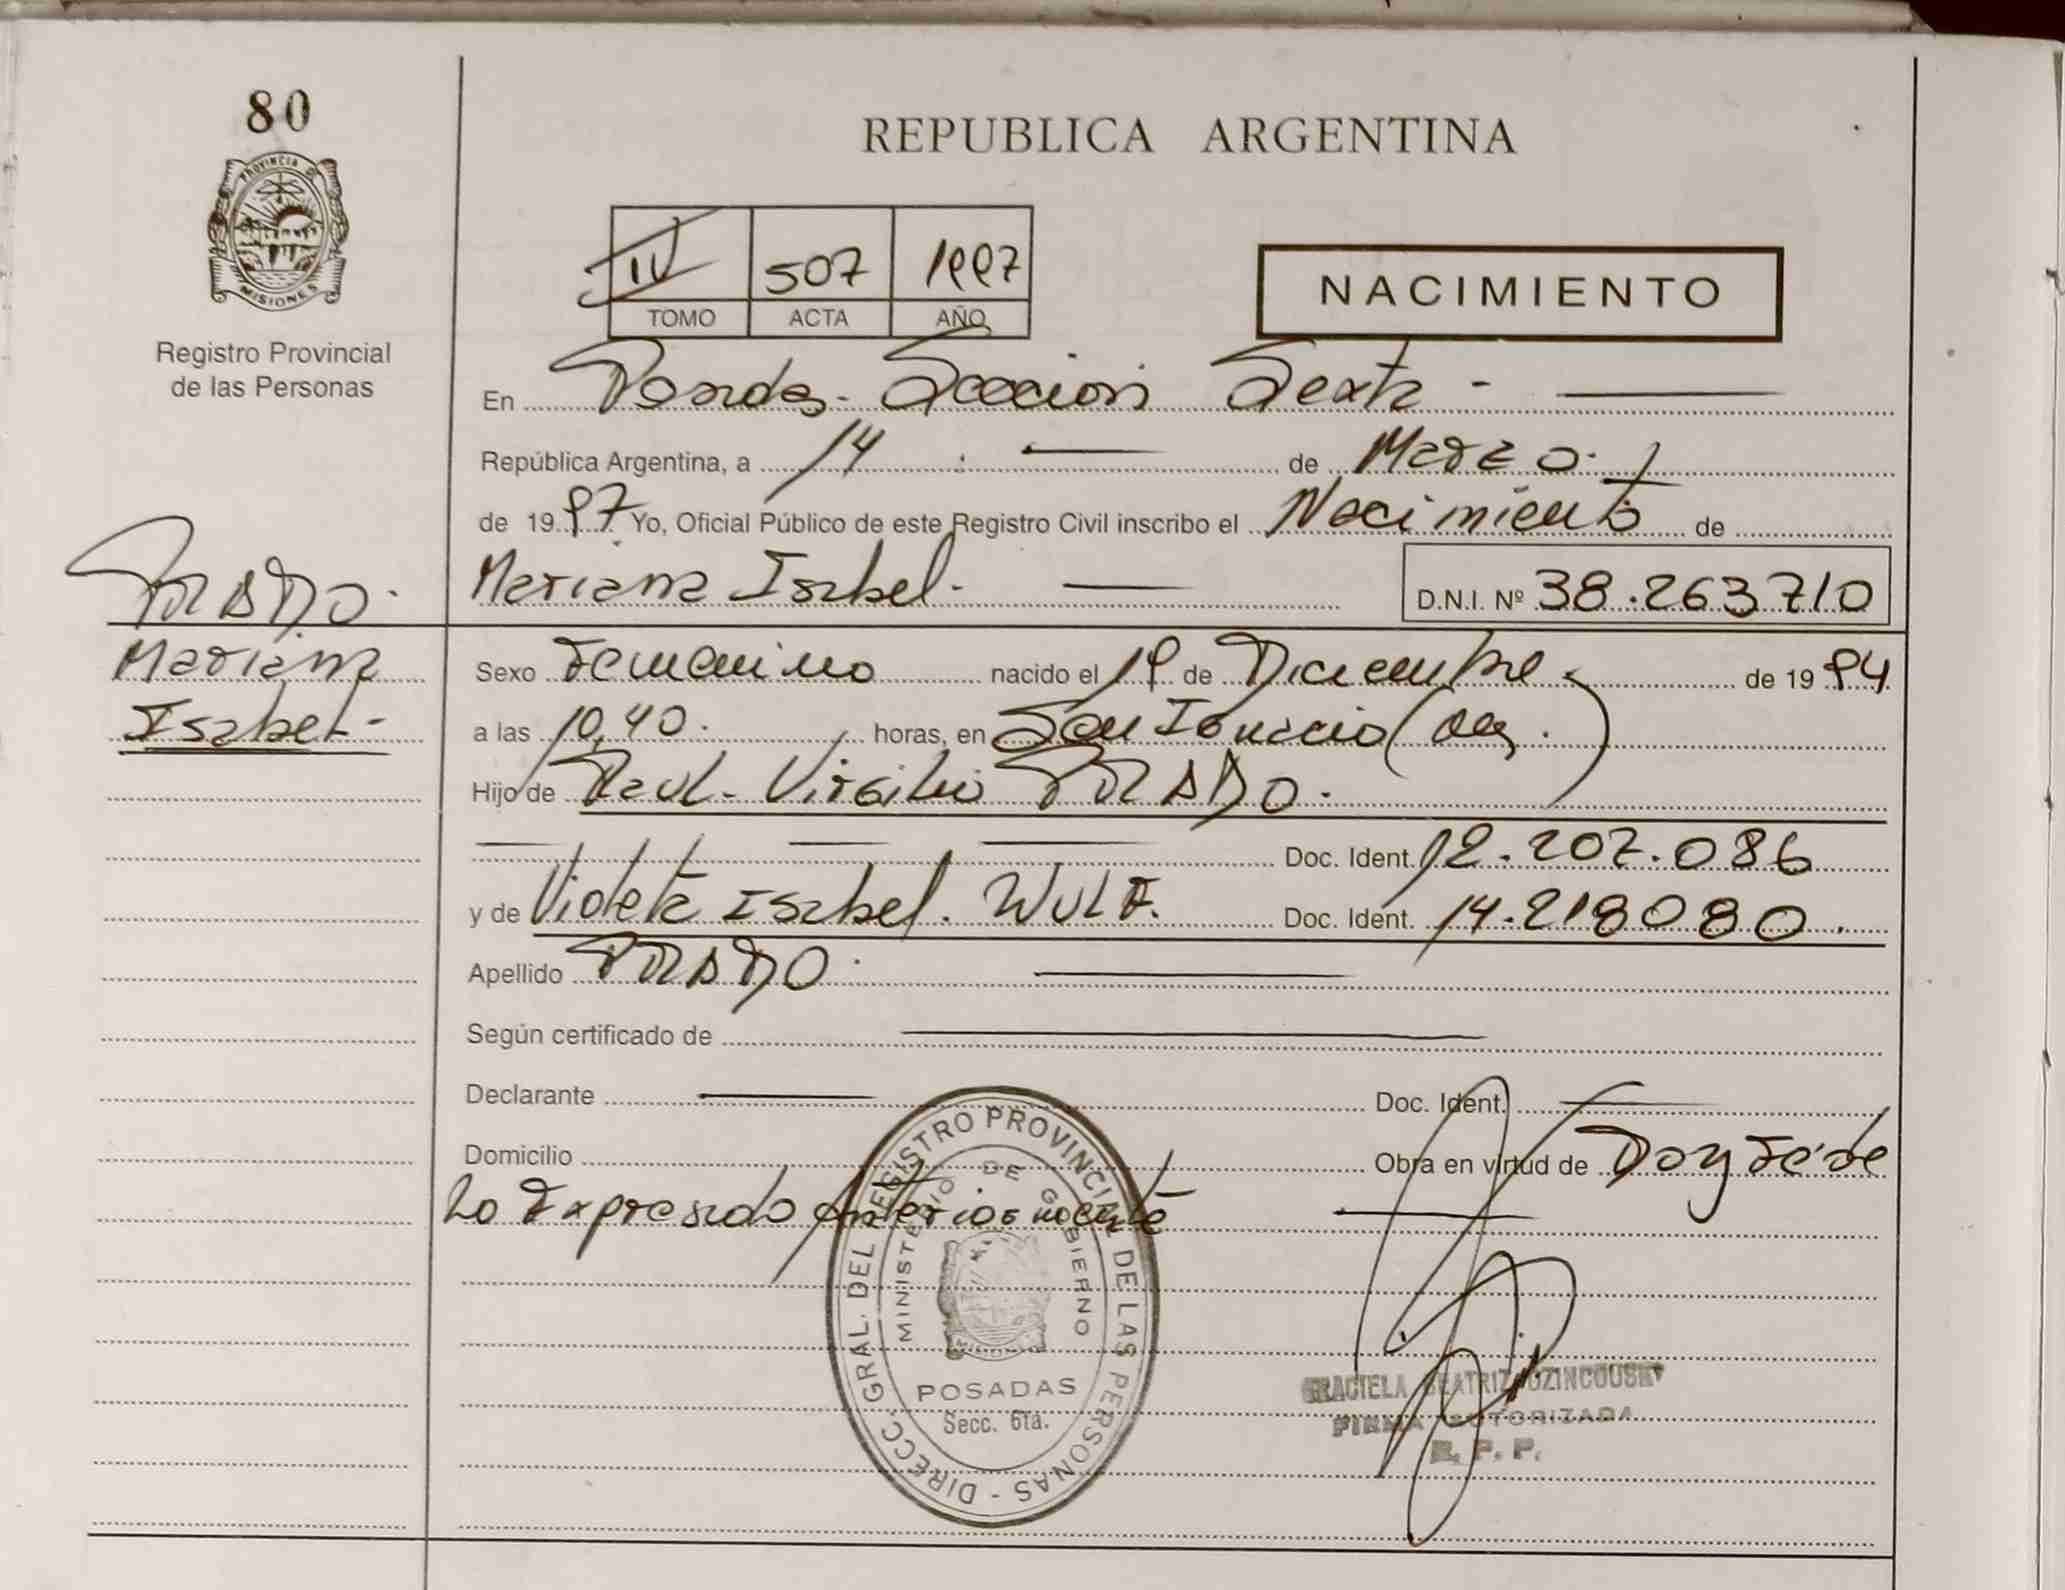 80
REPUBLICA ARGENTINA
PROVINCIA DE
MISIONES
IV 507 1997
TOMO ACTA AÑO
NACIMIENTO
Registro Provincial
de las Personas
En Posadas - Seccion Sexta -
República Argentina, a 14 de Marzo.
de 1997 Yo, Oficial Público de este Registro Civil inscribo el Nacimiento de
PRADO.
Mariana Isabel - D.N.I. Nº 38.263.710
Mariana
Isabel -
Sexo Femenino nacido el 19 de Diciembre de 1994
a las 10,40. horas, en San Ignacio
Hijo de Raul - Virgilio PRADO.
Doc. Ident. 12.207.086
y de Violeta Isabel. WULF. Doc. Ident. 14.218080.
Apellido PRADO.
Según certificado de
Declarante Doc. Ident.
Domicilio Obra en virtud de Doy Fé de
Lo Expresado Anteriormente
DIRECC. GRAL. DEL REGISTRO PROVINCIAL DE LAS PERSONAS -
MINISTERIO DE GOBIERNO
MISIONES
POSADAS
Secc. 6ta.
GRACIELA BEATRIZ
FIRMA AUTORIZADA
R. P. P.